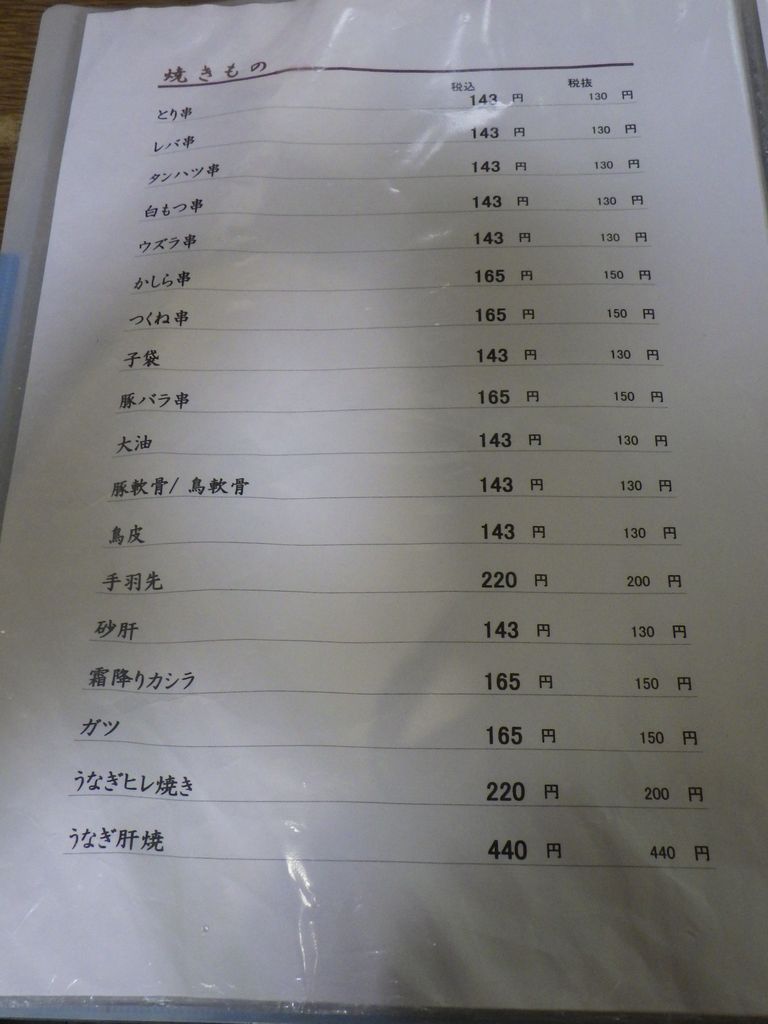 焼きもの
税込 税抜
とり串 143 円 130 円
レバ串 143 円 130 円
タンハツ串 143 円 130 円
白もつ串 143 円 130 円
ウズラ串 143 円 130 円
かしら串 165 円 150 円
つくね串 165 円 150 円
子袋 143 円 130 円
豚バラ串 165 円 150 円
大油 143 円 130 円
豚軟骨/ 鳥軟骨 143 円 130 円
鳥皮 143 円 130 円
手羽先 220 円 200 円
砂肝 143 円 130 円
霜降りカシラ 165 円 150 円
ガツ 165 円 150 円
うなぎヒレ焼き 220 円 200 円
うなぎ肝焼 440 円 440 円